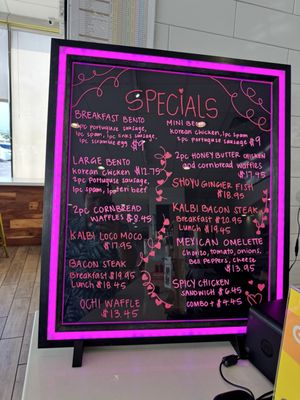 SPECIALS
BREAKFAST BENTO
1pc portuguese sausage,
1pc spam, 1pc links sausage,
1pc scramble egg $9
LARGE BENTO
Korean chicken $12.75
3pc Portuguese sausage,
1pc spam, teri beef
2pc CORNBREAD
WAFFLES $8.45
KALBI LOCO MOCO
$17.95
BACON STEAK
Breakfast $19.95
Lunch $18.45
OCHI WAFFLE
$13.45
MINI BENTO
Korean chicken, 1pc spam
2pc portuguese sausage $9
2pc HONEY BUTTER CHICKEN
and cornbread waffles
$17.45
SHOYU GINGER FISH
$18.95
KALBI BACON STEAK
Breakfast $20.95
Lunch $19.45
MEXICAN OMELETTE
Chorizo, tomato, onions,
Bell Peppers, cheese
$13.95
SPICY CHICKEN
SANDWICH $6.45
COMBO + $4.45